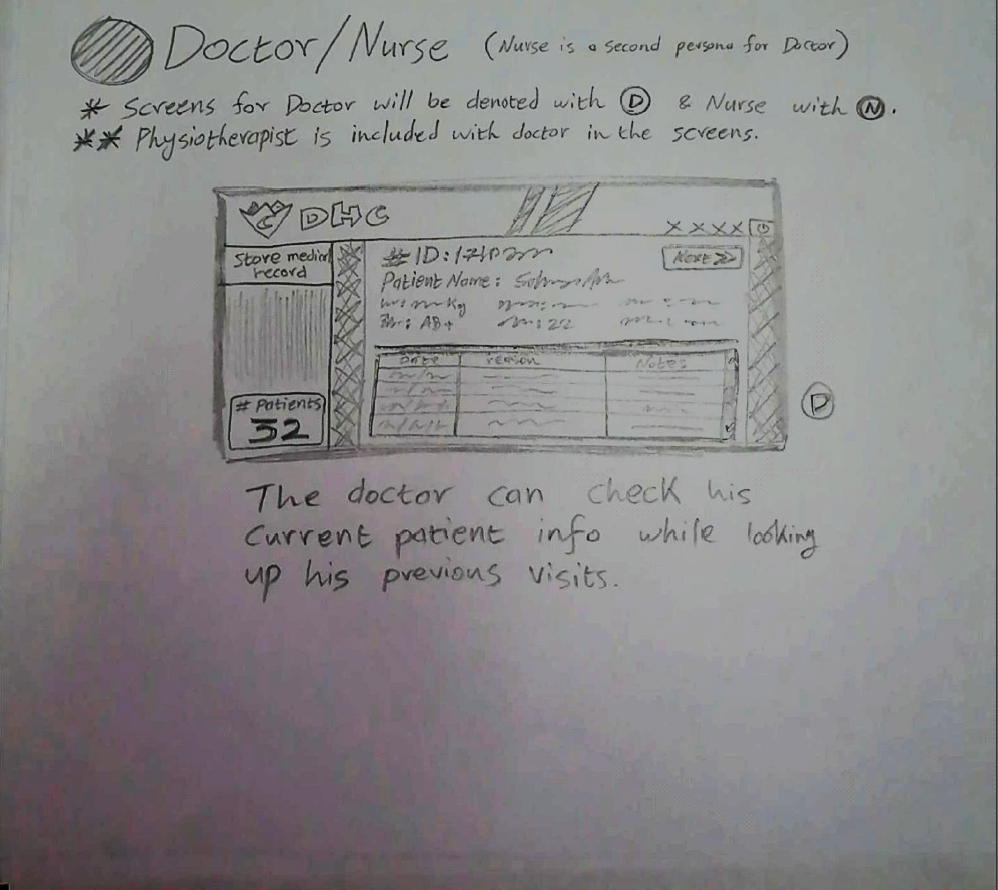 Doctor/Nurse (Nurse is a second persona for Doctor)
* Screens for Doctor will be denoted with D & Nurse with N.
** Physiotherapist is included with doctor in the screens.
DHC
x x x x
Store medical record
# ID:
Next >>
Patient Name:
Kg
: AB+ : 22
Date reason Notes
# Patients
32
D
The doctor can check his
current patient info while looking
up his previous visits.